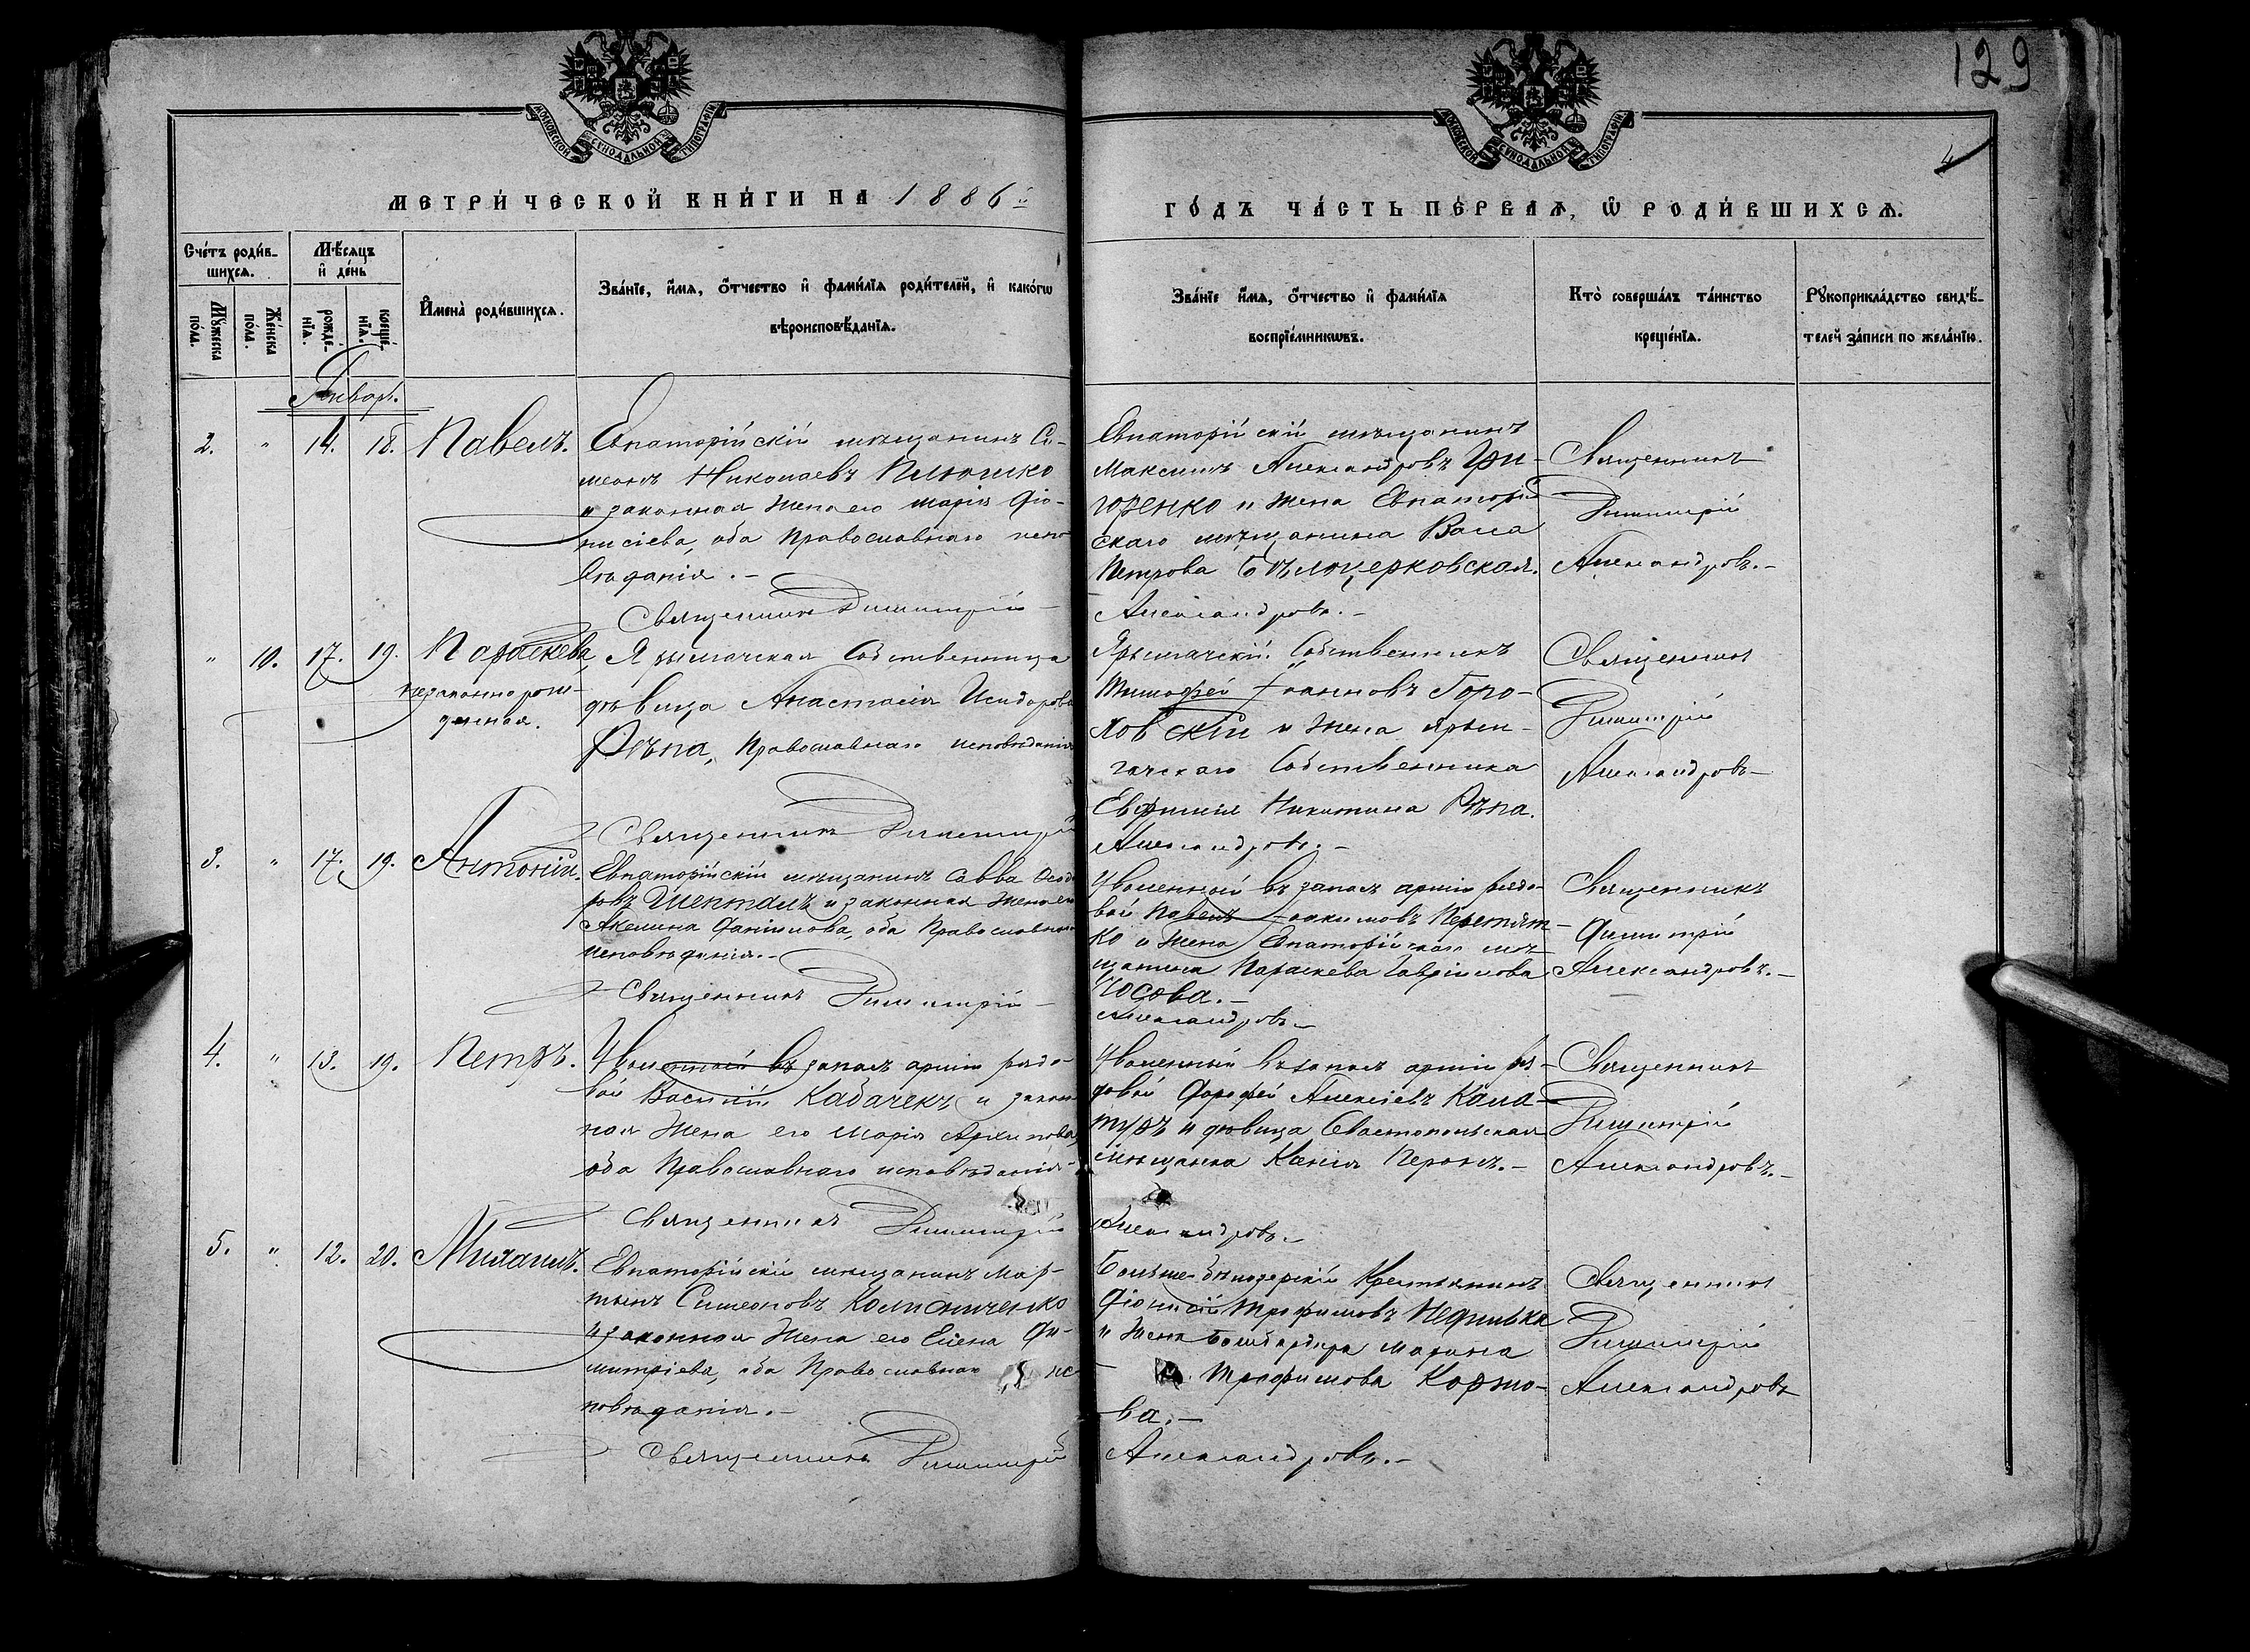 129
4
МОСКОВСКОЙ СѴНОДАЛЬНОЙ ТИПОГРАФІИ
МОСКОВСКОЙ СѴНОДАЛЬНОЙ ТИПОГРАФІИ
МЕТРИ́ЧЕСКОЙ КНИ́ГИ НА 1886й
ГО́ДЪ ЧА́СТЬ ПЕ́РВАЯ, Ѡ РОДИ́ВШИХСѦ.
Сче́тъ роди́в-
шихсѧ.
Мꙋ́жеска
по́ла.
Же́нска
по́ла.
Мѣ́сѧцъ
и҆ де́нь
рожде́-
нїѧ.
креще́-
нїѧ.
И҆мена̀ роди́вшихсѧ.
Зва́нїе, и҆́мѧ, ѻ҆́тчество и҆ фами́лїѧ роди́телей, и҆ како́гѡ
вѣроисповѣ́данїѧ.
Зва́нїе и҆́мѧ, ѻ҆́тчество и҆ фами́лїѧ
воспрїе́мникѡвъ.
Кто̀ соверша́лъ та́инство
креще́нїѧ.
Рꙋкоприкла́дство свидѣ́-
телей за́писи по жела́нїю.
Январь.
2. " 14. 18. Павелъ.
Евпаторійскій мѣщанинъ Си-
меонъ Николаевъ Плюшко
и законная жена его Марія Діо-
нисіева, оба Православнаго испо-
вѣданія.-
Священникъ Димитрій
Евпаторійскій мѣщанинъ
Максимъ Александровъ Гри-
горенко и жена Евпаторій
скаго мѣщанина Васса
Петрова Бѣлоцерковская.
Александровъ.-
Священникъ
Димитрій
Александровъ.-
" 10. 17. 19. Параскева,
незаконнорож-
денная.
Ярылгачская Собственница
дѣвица Анастасія Исидорова
Рѣпа, Православнаго исповѣданія
Священникъ Димитрій
Ярылгачскій Собственникъ
Тимофей Іоанновъ Горо-
ховскій и жена Ярыл-
гачскаго Собственника
Евфимія Никитина Рѣпа.
Александровъ.-
Священникъ
Димитрій
Александровъ-
3. " 17. 19. Антоній.
Евпаторійскій мѣщанинъ Савва Ѳеодо
ровъ Шепталъ и законная жена его
Акелина Даніилова, оба Православнаго
исповѣданія.-
Священникъ Димитрій-
Уволенный въ запасъ арміи рядо-
вой Павелъ Іоакимовъ Перетят-
ко и жена Евпаторійскаго мѣ-
щанина Параскева Гавріилова
Чосова.-
Александровъ.-
Священникъ
Димитрій
Александровъ.-
4. " 13. 19. Петръ.
Уволенный въ запасъ арміи рядо-
вой Василій Кабачекъ и закон-
ная жена его Марія Архипова,
оба Православнаго исповѣданія-
Священникъ Димитрій
Уволенный въ запасъ арміи ря-
довой Дорофей Алексіевъ Кала-
туръ и дѣвица Севастопольская
мѣщанка Ксенія Перонъ.-
Александровъ.-
Священникъ
Димитрій
Александровъ.-
5. " 12. 20. Михаилъ.
Евпаторійскій мѣщанинъ Мар-
тынъ Симеоновъ Колпаниченко
и законная жена его Елена Ди-
митріева, оба Православнаго ис-
повѣданія.-
Священникъ Димитрій
Больше-бѣлозерскій Крестьянинъ
Діонисій Трофимовъ Недилька
и жена Бомбардира Марина
Трофимова Коржо-
ва.-
Александровъ.-
Священникъ
Димитрій
Александровъ